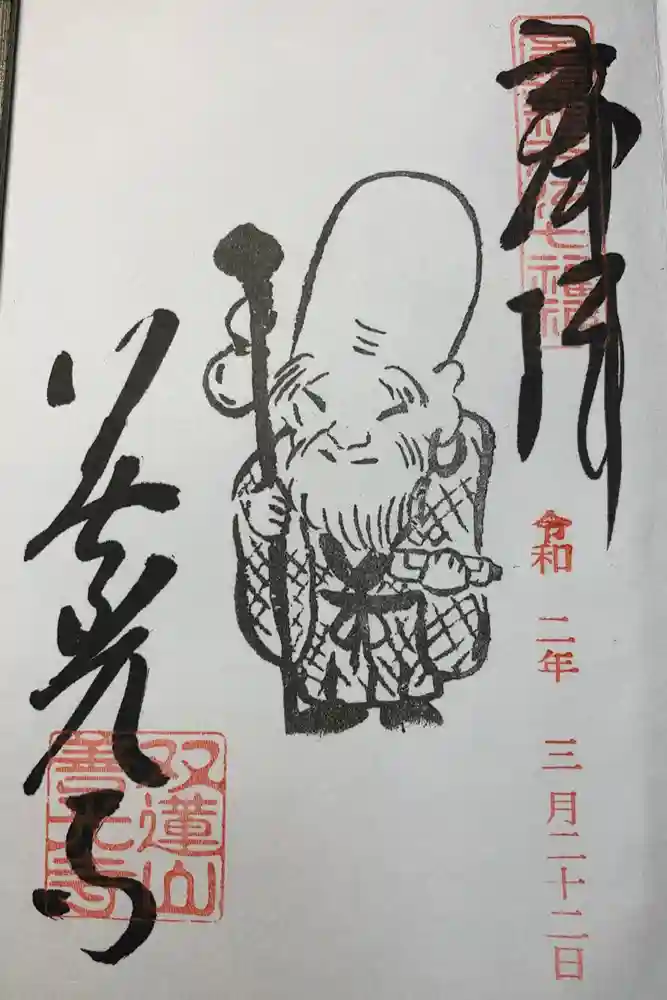 奉拝
七福神
令和 二年 三月二十二日
善光寺
双蓮山
善光寺